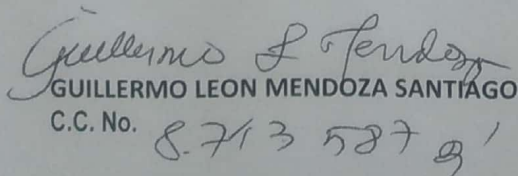 Guillermo L Mendoza
GUILLERMO LEON MENDOZA SANTIAGO
C.C. No. 8.713 587